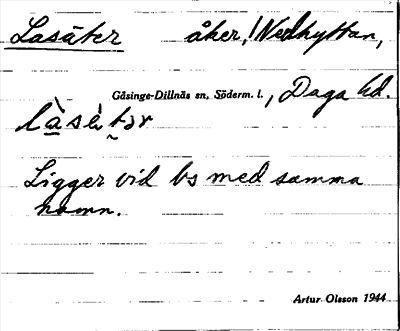 Lasäter åker, Nedhyttan,
Gåsinge-Dillnäs sn, Söderm. l., Daga hd.
Ligger vid bs med samma
namn.
Artur Olsson 1944